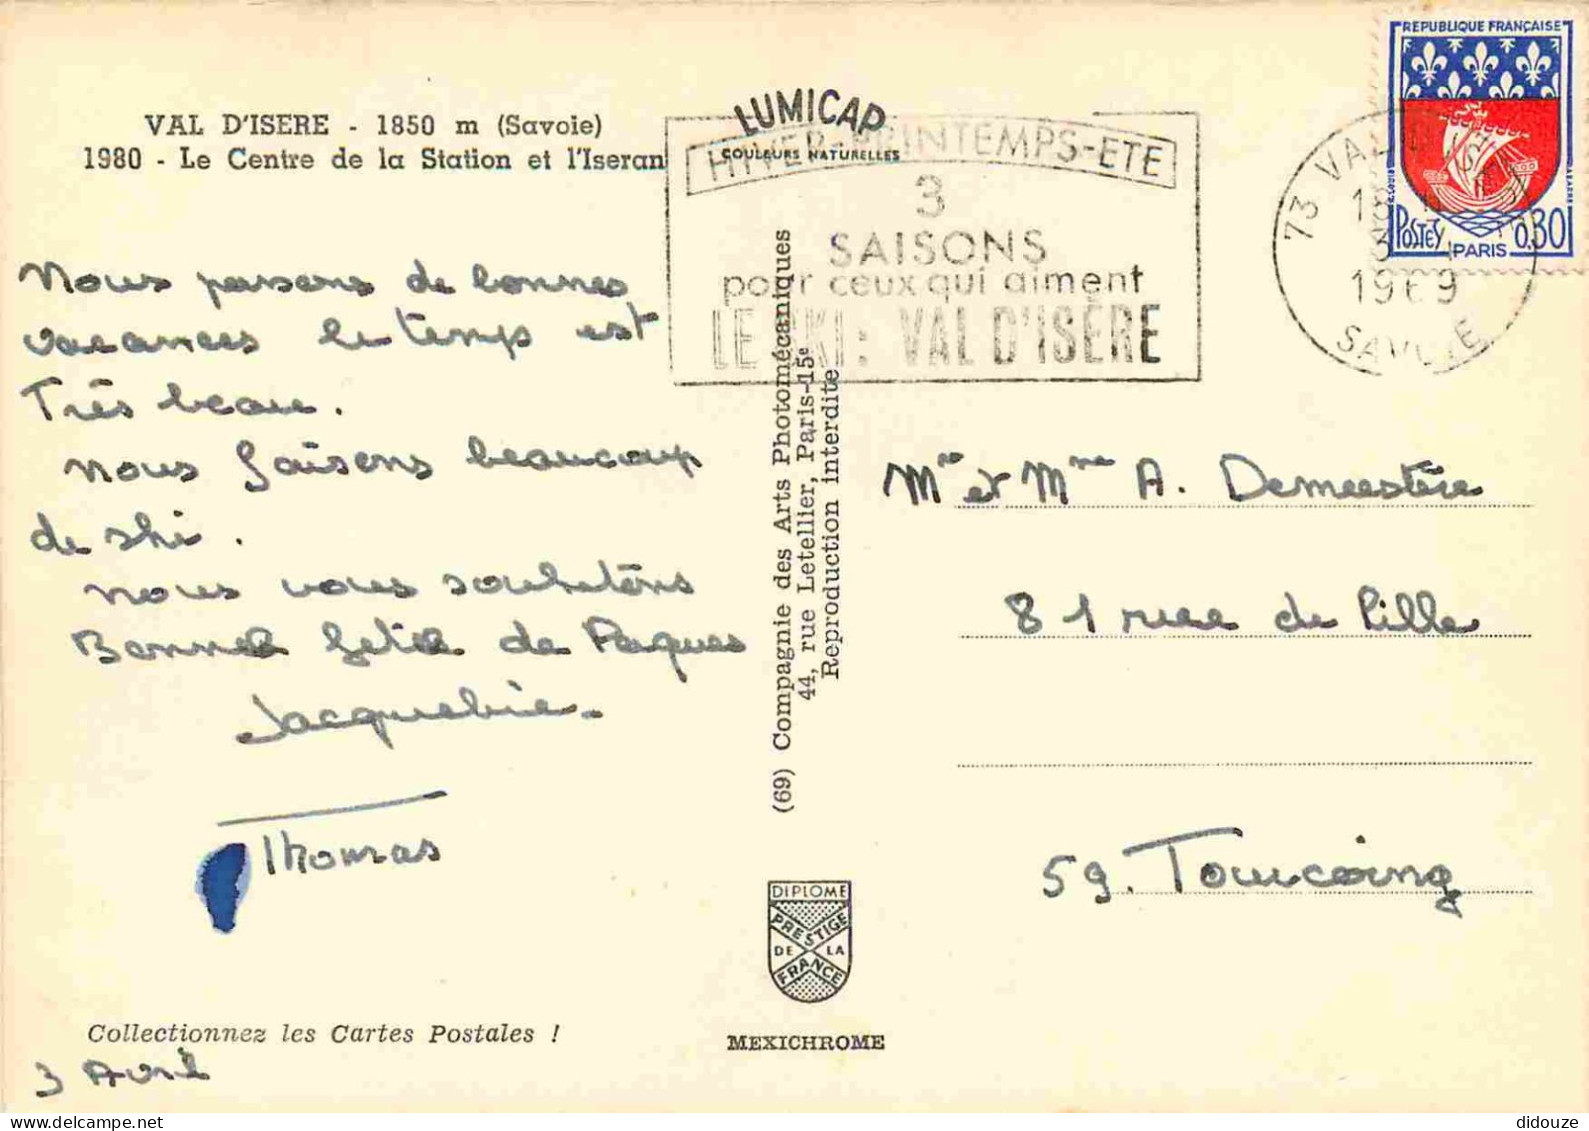 VAL D'ISERE - 1850 m (Savoie)
1980 - Le Centre de la Station et l'Iseran
Nous passons de bonnes
vacances le temps est
Très beau.
nous faisons beaucoup
de ski.
nous vous souhaitons
Bonne fête de Paques
Jacqueline.
Thomas
Collectionnez les Cartes Postales !
3 Avril
LUMICAP
COULEURS NATURELLES
HIVER-PRINTEMPS-ETE
3
SAISONS
pour ceux qui aiment
LE SKI: VAL D'ISÈRE
(69) Compagnie des Arts Photomécaniques
44, rue Letellier, Paris-15e
Reproduction interdite
DIPLOME
PRESTIGE
DE LA
FRANCE
MEXICHROME
REPUBLIQUE FRANÇAISE
POSTES
0,30
PARIS
73 VAL D'ISERE
18
3
1969
SAVOIE
Mr et Mme A. Demeestère
81 rue de Lille
59. Tourcoing
didouze